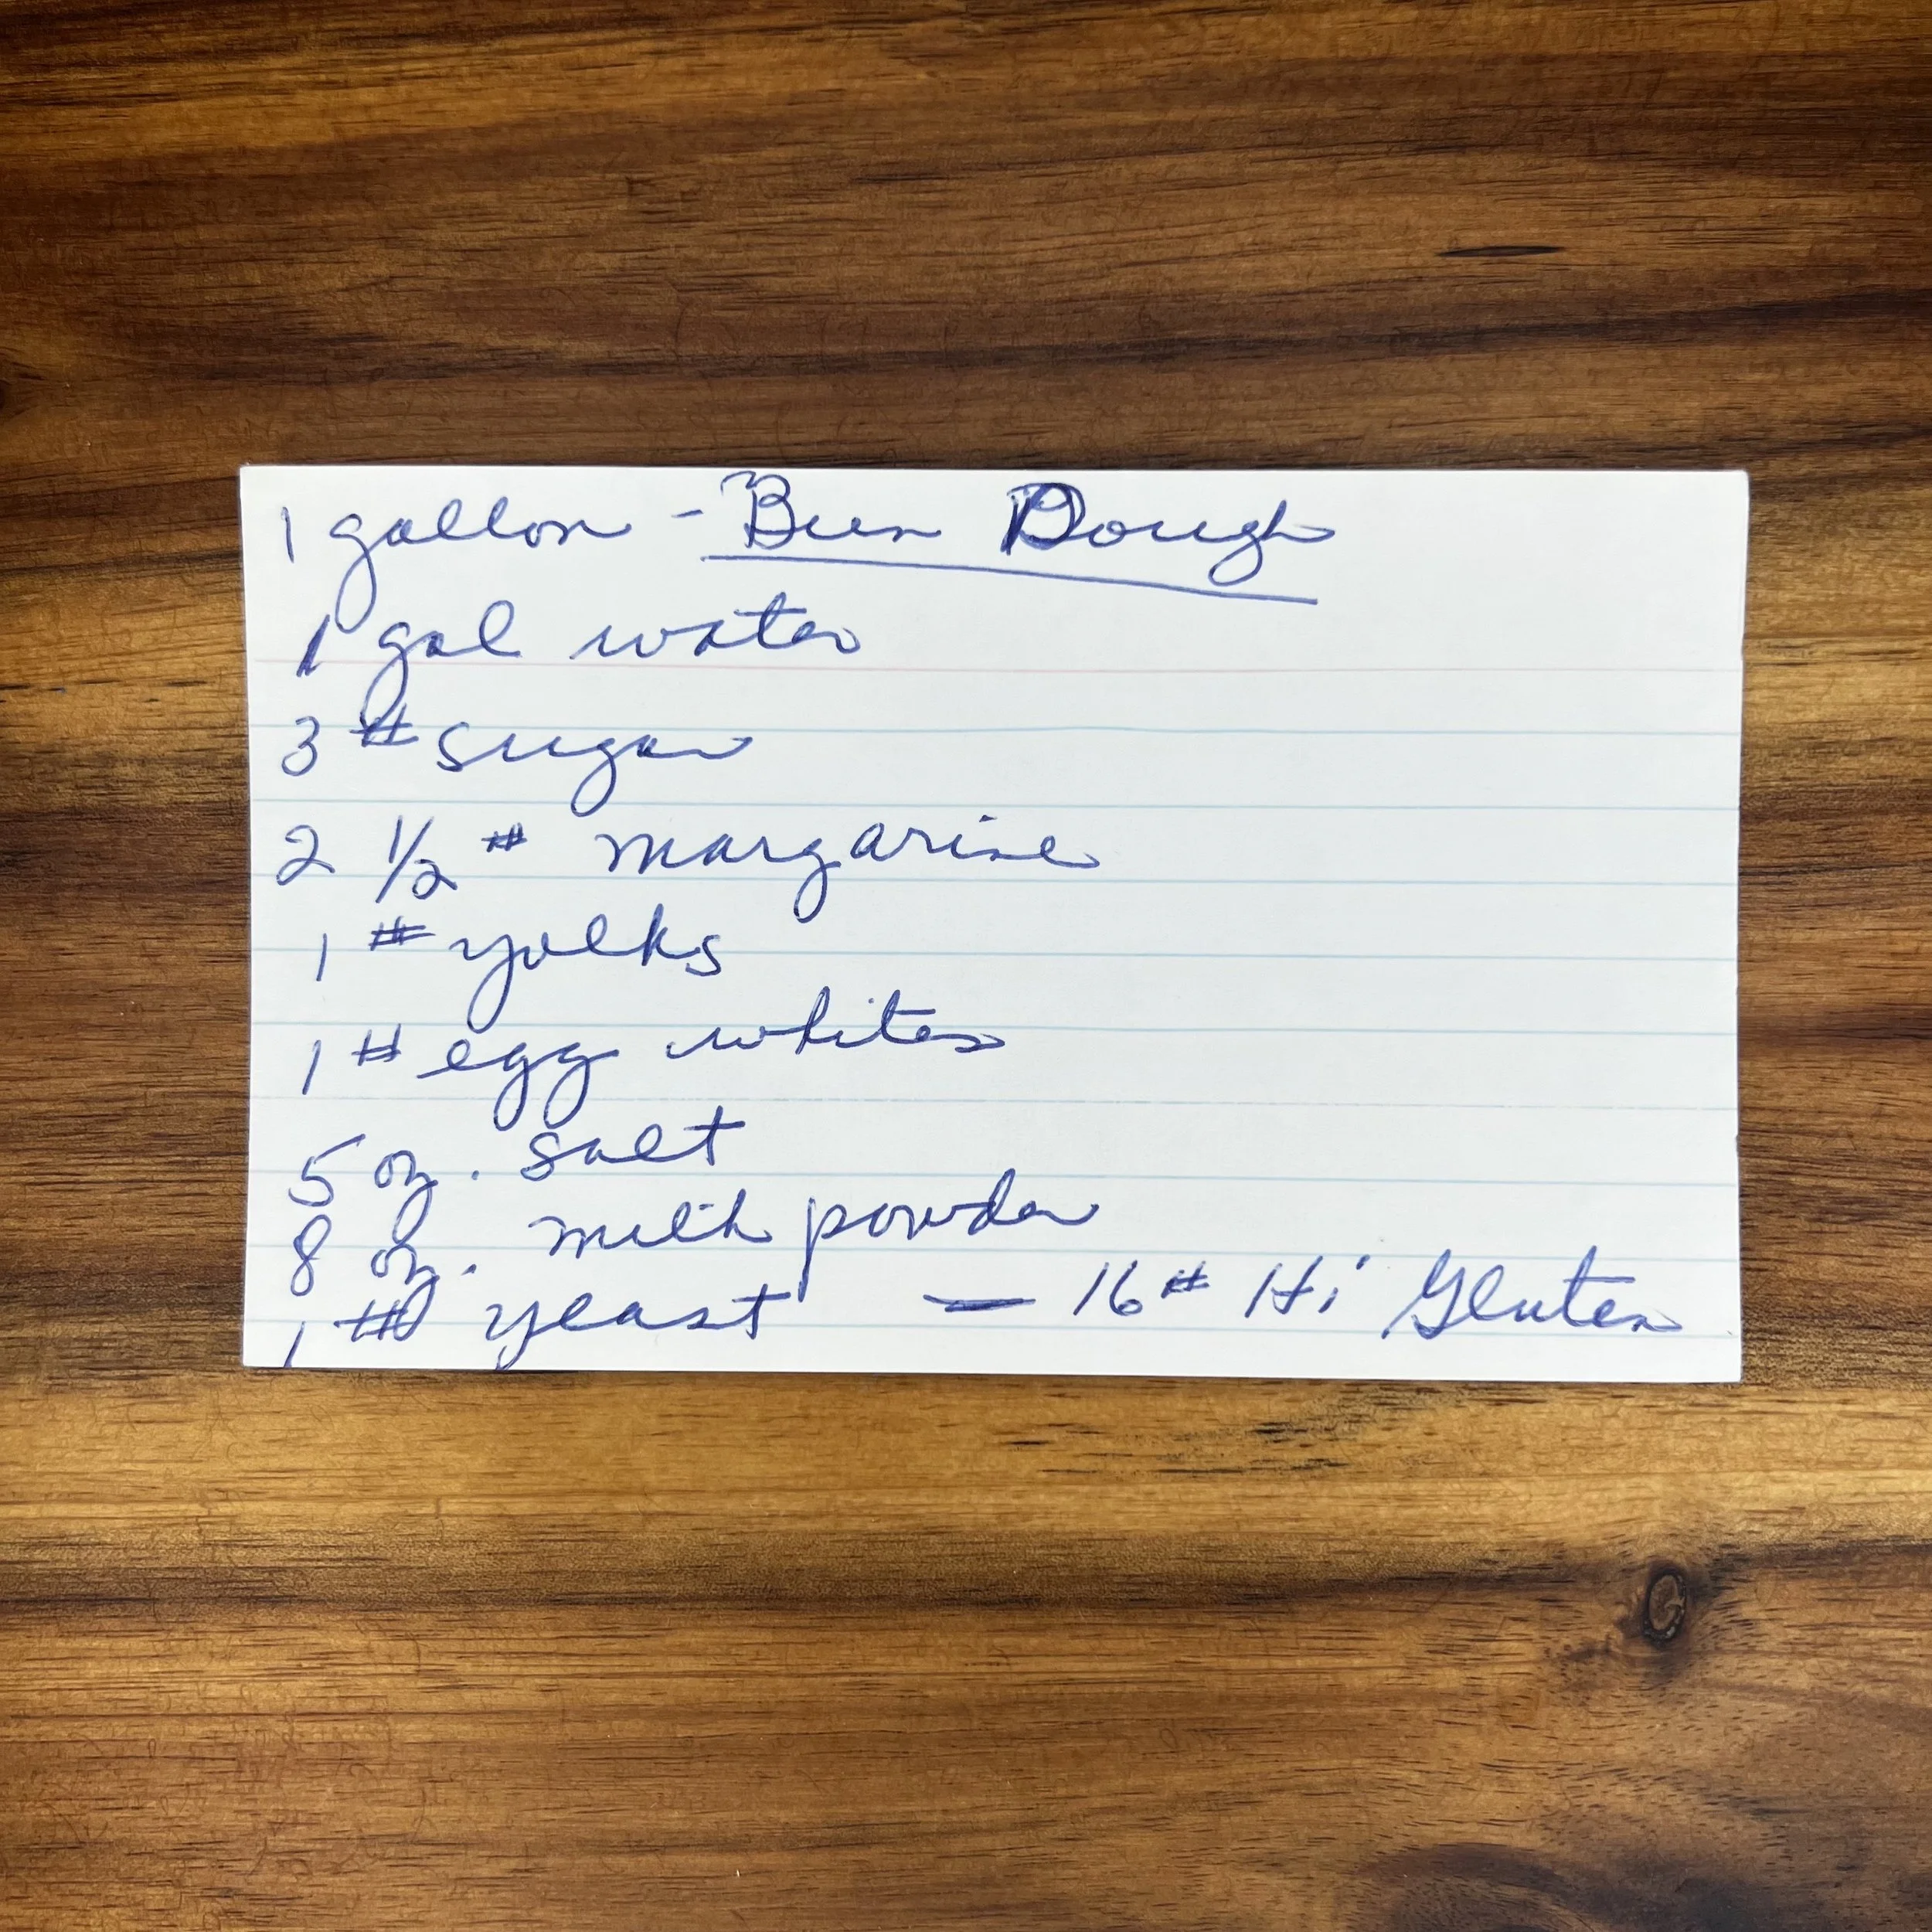 1 gallon - Bun Dough
1 gal water
3 # sugar
2 1/2 # margarine
1 # yolks
1 # egg whites
5 oz. salt
8 oz. milk powder
1 # yeast — 16 # Hi Gluten